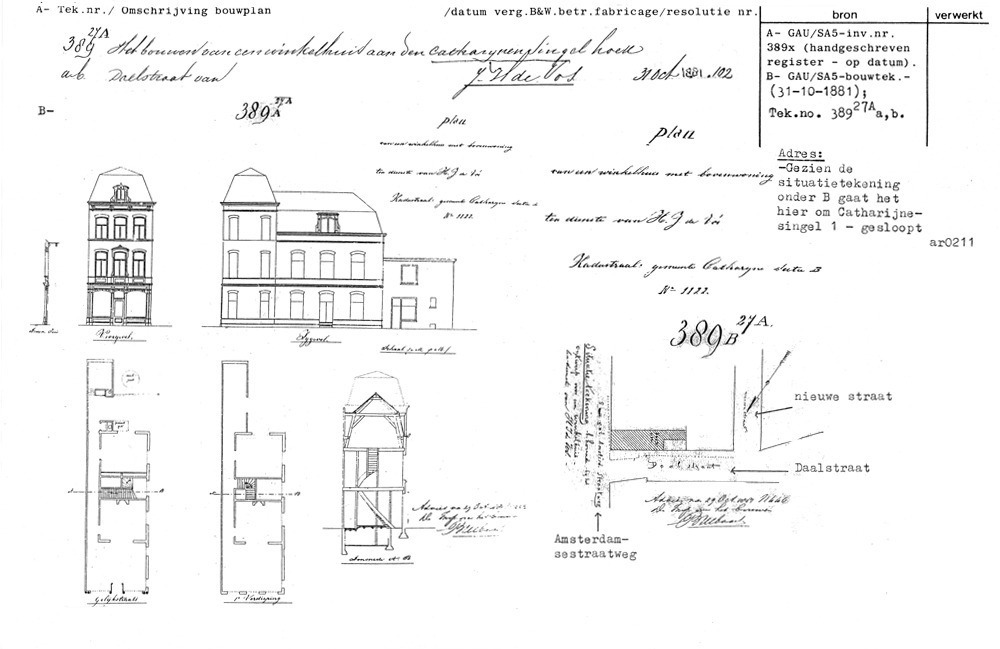 A- Tek.nr./ Omschrijving bouwplan
/datum verg.B&W.betr.fabricage/resolutie nr.
bron
verwerkt
389 27A Het bouwen van een winkelhuis aan den Catharynensingel hoek
a.b. Daelstraat van J. H. de Vos 31 Oct 1881 .102
A- GAU/SA5-inv.nr.
389x (handgeschreven
register - op datum).
B- GAU/SA5-bouwtek.-
(31-10-1881);
Tek.no. 389 27A a,b.
B-
389 27A A
plan
van een winkelhuis met bovenwoning
ten dienste van H. J de Vos
Kadastraal: gemeente Catharyne sectie B
No 1122.
plan
van een winkelhuis met bovenwoning
ten dienste van H. J de Vos
Kadastraal: gemeente Catharyne Sectie B
No 1122.
Adres:
-Gezien de
situatietekening
onder B gaat het
hier om Catharijne-
singel 1 - gesloopt
ar0211
Voorgevel.
Zijgevel
389 27A. B
nieuwe straat
Daalstraat
Daalstraat
Amsterdam-
sestraatweg
Doorsnede A B
Gelijkstraats
1e Verdieping